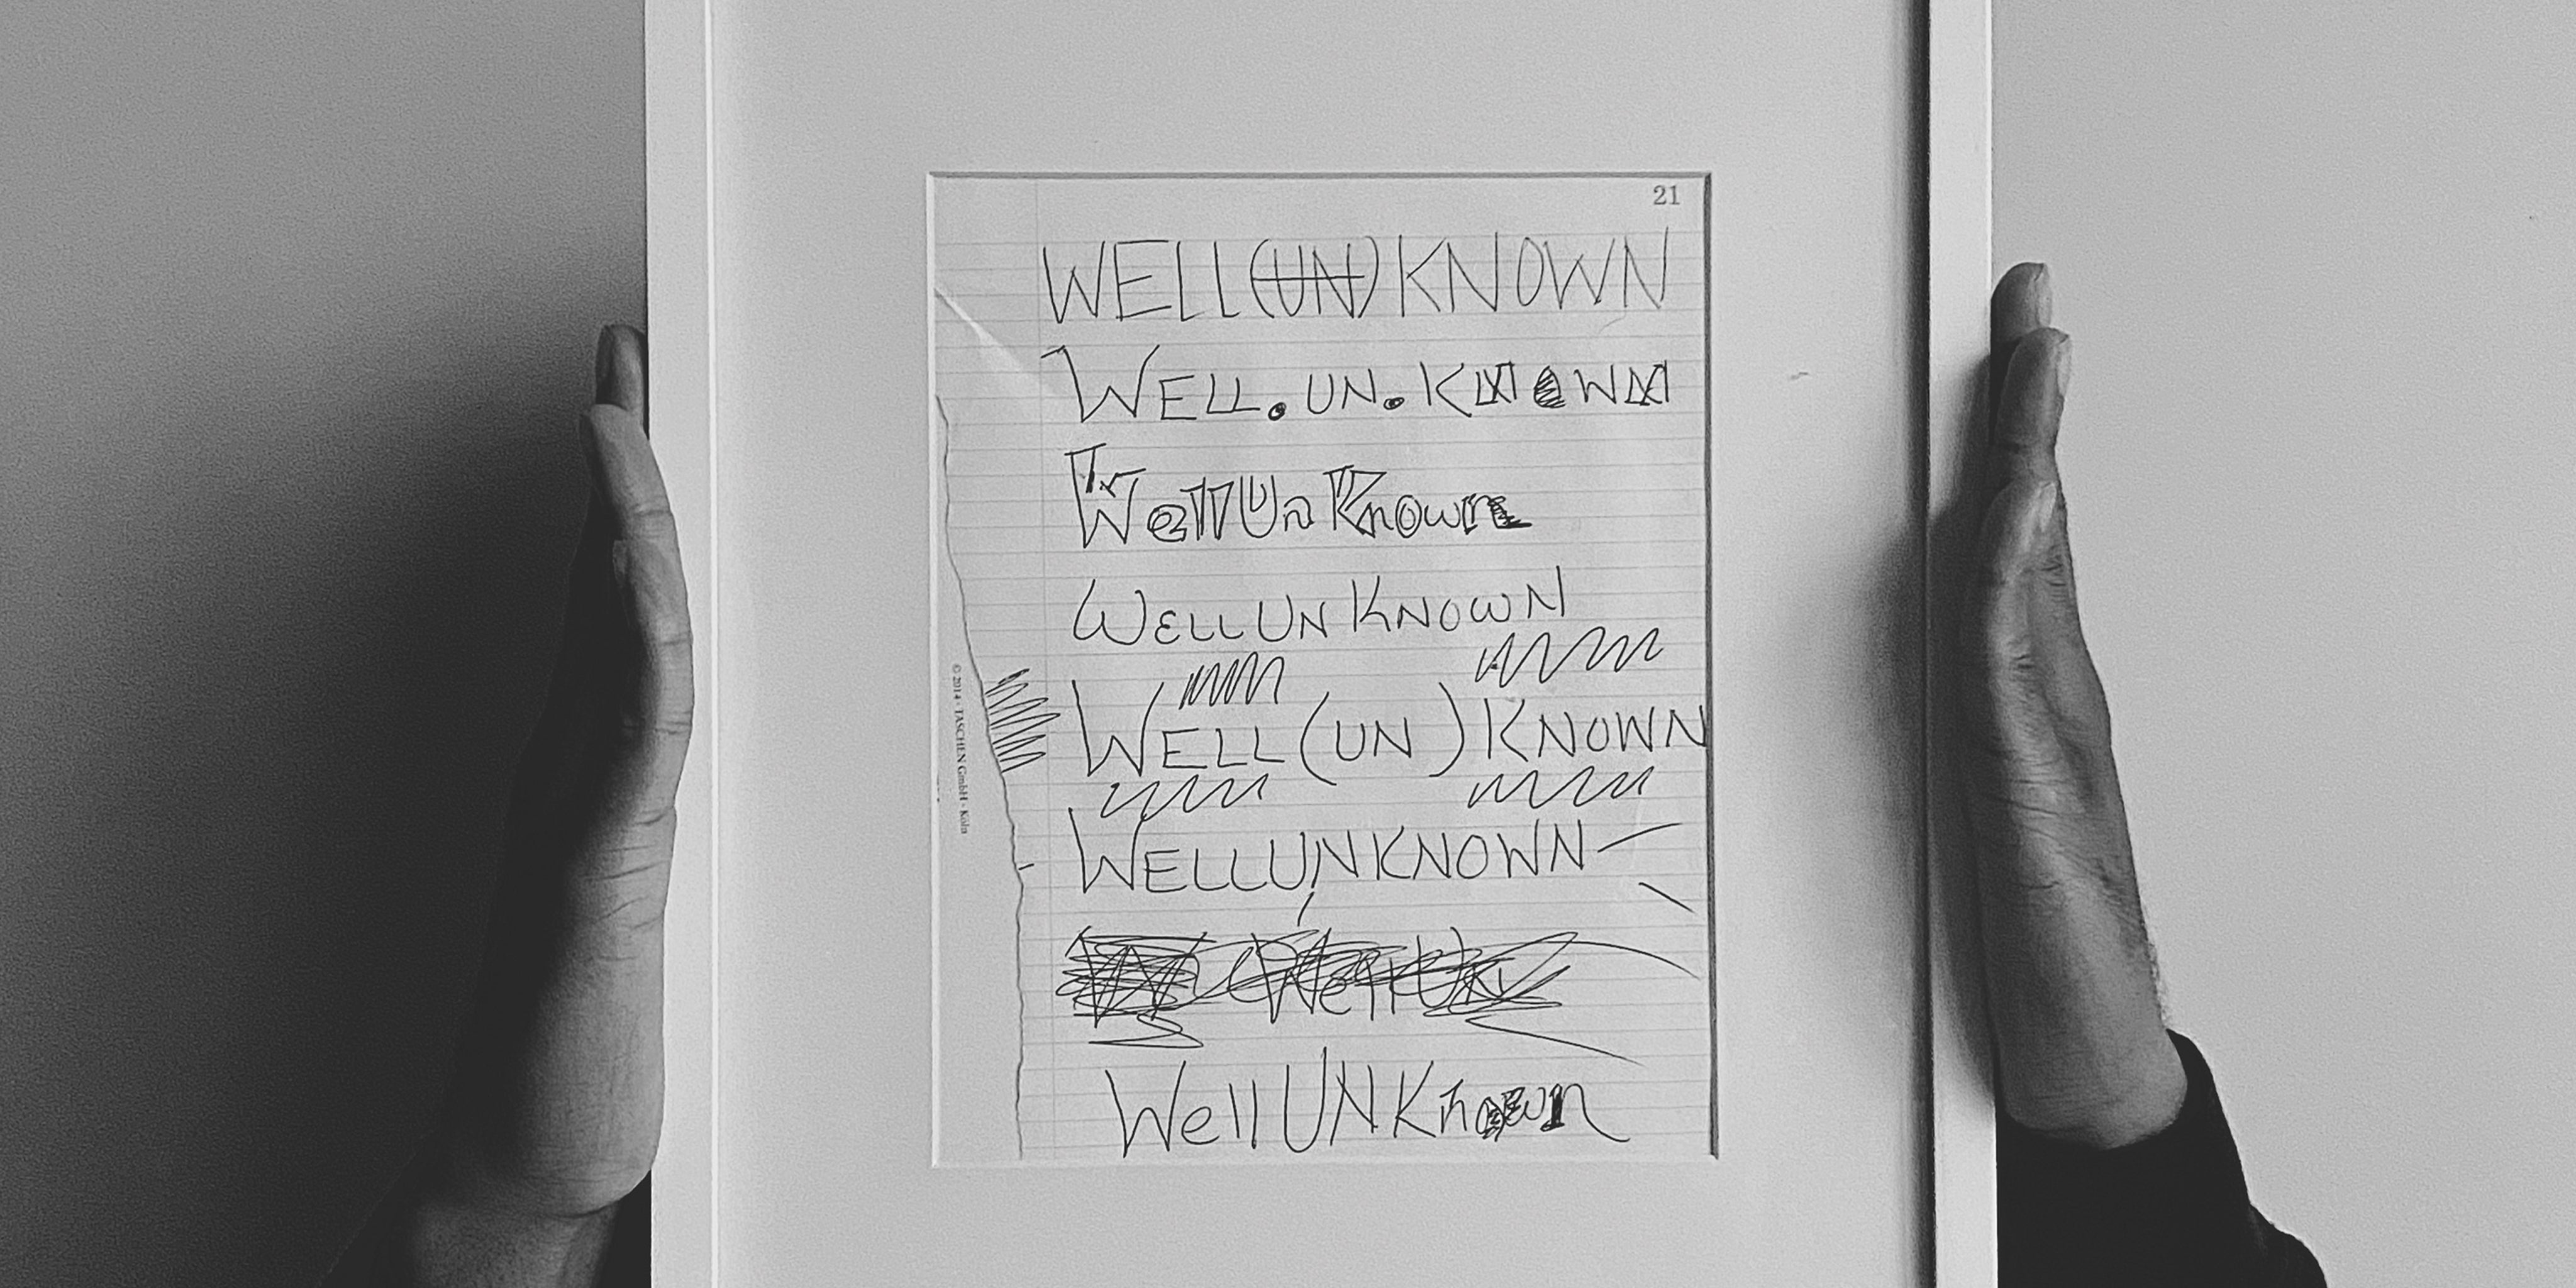 21
WELL(UN)KNOWN
WELL.UN.KNOWN
WellUnKnown
WELLUNKNOWN
WELL(UN)KNOWN
© 2014 · TASCHEN GmbH · Köln
WELLUNKNOWN
W WellUn
WellUNKnown